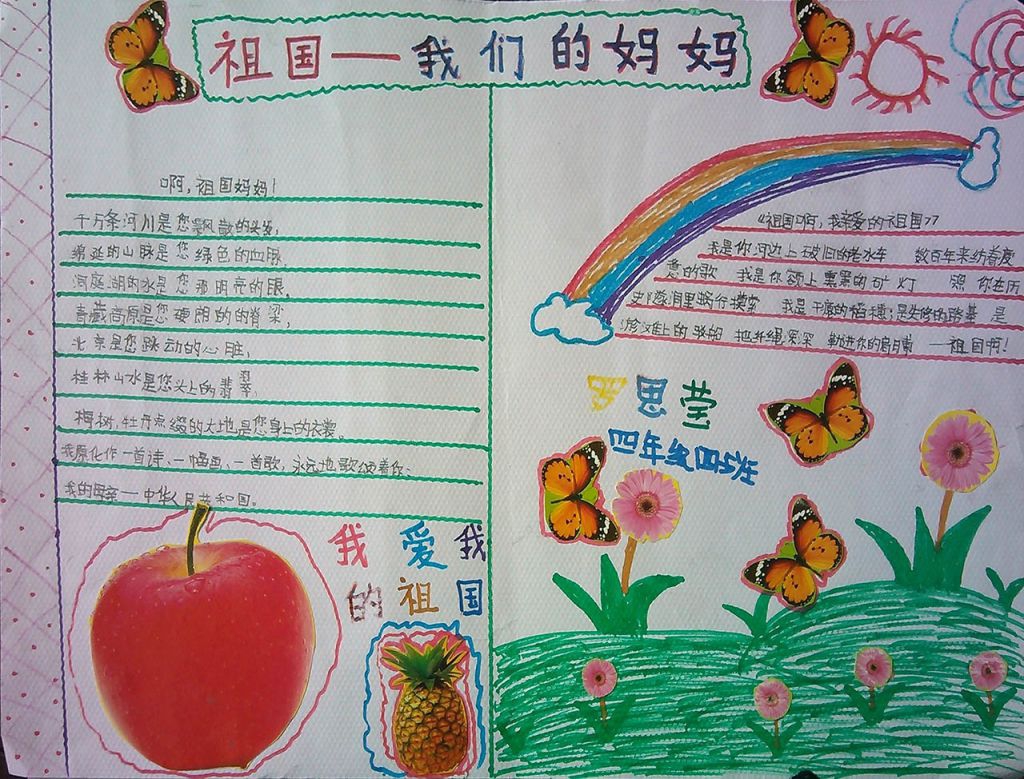 祖国一我们的妈妈
啊，祖国妈妈！
千万条河川是您飘散的头发，
绵延的山脉是您绿色的血脉，
洞庭湖的水是您那明亮的眼，
青藏高原是您硬朗的的脊梁，
北京是您跳动的心脏，
桂林山水是您头上的翡翠，
梅树，牡丹点缀的大地是您身上的衣裳。
我愿化作一首诗、一幅画、一首歌，永远地歌颂着你：
我的母亲一中华人民共和国。
我爱我
的祖国
《祖国啊，我亲爱的祖国》
我是你河边上破旧的老水车 数百年来纺着疲
惫的歌 我是你额上熏黑的矿灯 照你在历
史隧洞里蜗行摸索 我是干瘪的稻穗；是失修的路基 是
淤滩上的驳船 把纤绳深深 勒进你的肩膊 一祖国啊！
罗思莹
四年级四班